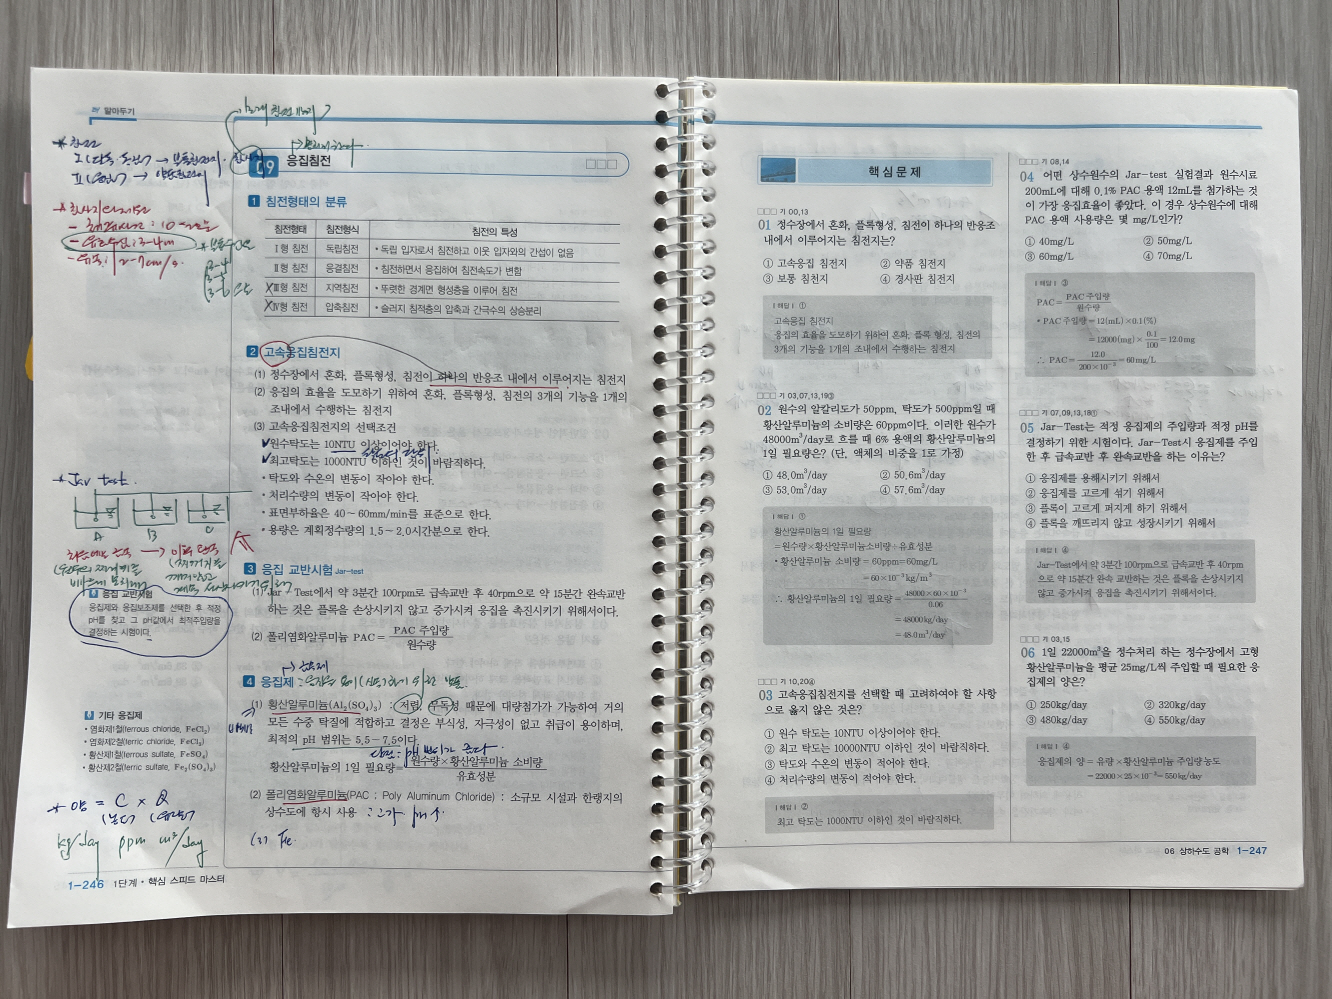 알아두기
09 응집침전
1 침전형태의 분류
침전형태 침전형식 침전의 특성
Ⅰ형 침전 독립침전 • 독립 입자로서 침전하고 이웃 입자와의 간섭이 없음
Ⅱ형 침전 응결침전 • 침전하면서 응집하여 침전속도가 변함
Ⅲ형 침전 지역침전 • 뚜렷한 경계면 형성층을 이루어 침전
Ⅳ형 침전 압축침전 • 슬러지 침적층의 압축과 간극수의 상승분리
2 고속응집침전지
(1) 정수장에서 혼화, 플록형성, 침전이 하나의 반응조 내에서 이루어지는 침전지
(2) 응집의 효율을 도모하기 위하여 혼화, 플록형성, 침전의 3개의 기능을 1개의
조내에서 수행하는 침전지
(3) 고속응집침전지의 선택조건
• 원수탁도는 10NTU 이상이어야 한다.
• 최고탁도는 1000NTU 이하인 것이 바람직하다.
• 탁도와 수온의 변동이 작아야 한다.
• 처리수량의 변동이 작아야 한다.
• 표면부하율은 40~60mm/min를 표준으로 한다.
• 용량은 계획정수량의 1.5~2.0시간분으로 한다.
3 응집 교반시험 Jar-test
(1) Jar-Test에서 약 3분간 100rpm로 급속교반 후 40rpm으로 약 15분간 완속교반
하는 것은 플록을 손상시키지 않고 증가시켜 응집을 촉진시키기 위해서이다.
(2) 폴리염화알루미늄 PAC = PAC 주입량 / 원수량
4 응집제
(1) 황산알루미늄(Al₂(SO₄)₃) : 저렴, 무독성 때문에 대량첨가가 가능하여 거의
모든 수중 탁질에 적합하고 결정은 부식성, 자극성이 없고 취급이 용이하며,
최적의 pH 범위는 5.5~7.5이다.
황산알루미늄의 1일 필요량 = 원수량×황산알루미늄 소비량 / 유효성분
(2) 폴리염화알루미늄(PAC ; Poly Aluminum Chloride) : 소규모 시설과 한랭지의
상수도에 항시 사용
(3) Fe.
* Jar test.
A B C
응집 교반시험
응집제와 응집보조제를 선택한 후 적정
pH를 찾고 그 pH값에서 최적주입량을
결정하는 시험이다.
기타 응집제
• 염화제1철(ferrous chloride, FeCl₂)
• 염화제2철(ferric chloride, FeCl₃)
• 황산제1철(ferrous sulfate, FeSO₄)
• 황산제2철(ferric sulfate, Fe₂(SO₄)₃)
* 양 = C × Q
kg/day ppm m³/day
1-246 1단계 • 핵심 스피드 마스터
핵심문제
□□□ 기 00,13
01 정수장에서 혼화, 플록형성, 침전이 하나의 반응조
내에서 이루어지는 침전지는?
① 고속응집 침전지 ② 약품 침전지
③ 보통 침전지 ④ 경사판 침전지
|해답| ①
고속응집 침전지
응집의 효율을 도모하기 위하여 혼화, 플록 형성, 침전의
3개의 기능을 1개의 조내에서 수행하는 침전지
□□□ 기 03,07,13,19③
02 원수의 알칼리도가 50ppm, 탁도가 500ppm일 때
황산알루미늄의 소비량은 60ppm이다. 이러한 원수가
48000m³/day로 흐를 때 6% 용액의 황산알루미늄의
1일 필요량은? (단, 액체의 비중을 1로 가정)
① 48.0m³/day ② 50.6m³/day
③ 53.0m³/day ④ 57.6m³/day
|해답| ①
황산알루미늄의 1일 필요량
= 원수량×황산알루미늄소비량÷유효성분
• 황산알루미늄 소비량 = 60ppm = 60mg/L
= 60×10⁻³ kg/m³
∴ 황산알루미늄의 1일 필요량 = 48000×60×10⁻³ / 0.06
= 48000kg/day
= 48.0m³/day
□□□ 기 10,20④
03 고속응집침전지를 선택할 때 고려하여야 할 사항
으로 옳지 않은 것은?
① 원수 탁도는 10NTU 이상이어야 한다.
② 최고 탁도는 10000NTU 이하인 것이 바람직하다.
③ 탁도와 수온의 변동이 적어야 한다.
④ 처리수량의 변동이 적어야 한다.
|해답| ②
최고 탁도는 1000NTU 이하인 것이 바람직하다.
□□□ 기 08,14
04 어떤 상수원수의 Jar-test 실험결과 원수시료
200mL에 대해 0.1% PAC 용액 12mL를 첨가하는 것
이 가장 응집효율이 좋았다. 이 경우 상수원수에 대해
PAC 용액 사용량은 몇 mg/L인가?
① 40mg/L ② 50mg/L
③ 60mg/L ④ 70mg/L
|해답| ③
PAC = PAC 주입량 / 원수량
• PAC 주입량 = 12(mL)×0.1(%)
= 12000(mg)× 0.1 / 100 = 12.0mg
∴ PAC = 12.0 / 200×10⁻³ = 60mg/L
□□□ 기 07,09,13,18①
05 Jar-Test는 적정 응집제의 주입량과 적정 pH를
결정하기 위한 시험이다. Jar-Test시 응집제를 주입
한 후 급속교반 후 완속교반을 하는 이유는?
① 응집제를 용해시키기 위해서
② 응집제를 고르게 섞기 위해서
③ 플록이 고르게 퍼지게 하기 위해서
④ 플록을 깨뜨리지 않고 성장시키기 위해서
|해답| ④
Jar-Test에서 약 3분간 100rpm로 급속교반 후 40rpm
으로 약 15분간 완속 교반하는 것은 플록을 손상시키지
않고 증가시켜 응집을 촉진시키기 위해서이다.
□□□ 기 03,15
06 1일 22000m³을 정수처리 하는 정수장에서 고형
황산알루미늄을 평균 25mg/L씩 주입할 때 필요한 응
집제의 양은?
① 250kg/day ② 320kg/day
③ 480kg/day ④ 550kg/day
|해답| ④
응집제의 양 = 유량×황산알루미늄 주입량 농도
= 22000×25×10⁻³ = 550kg/day
06 상하수도 공학 1-247